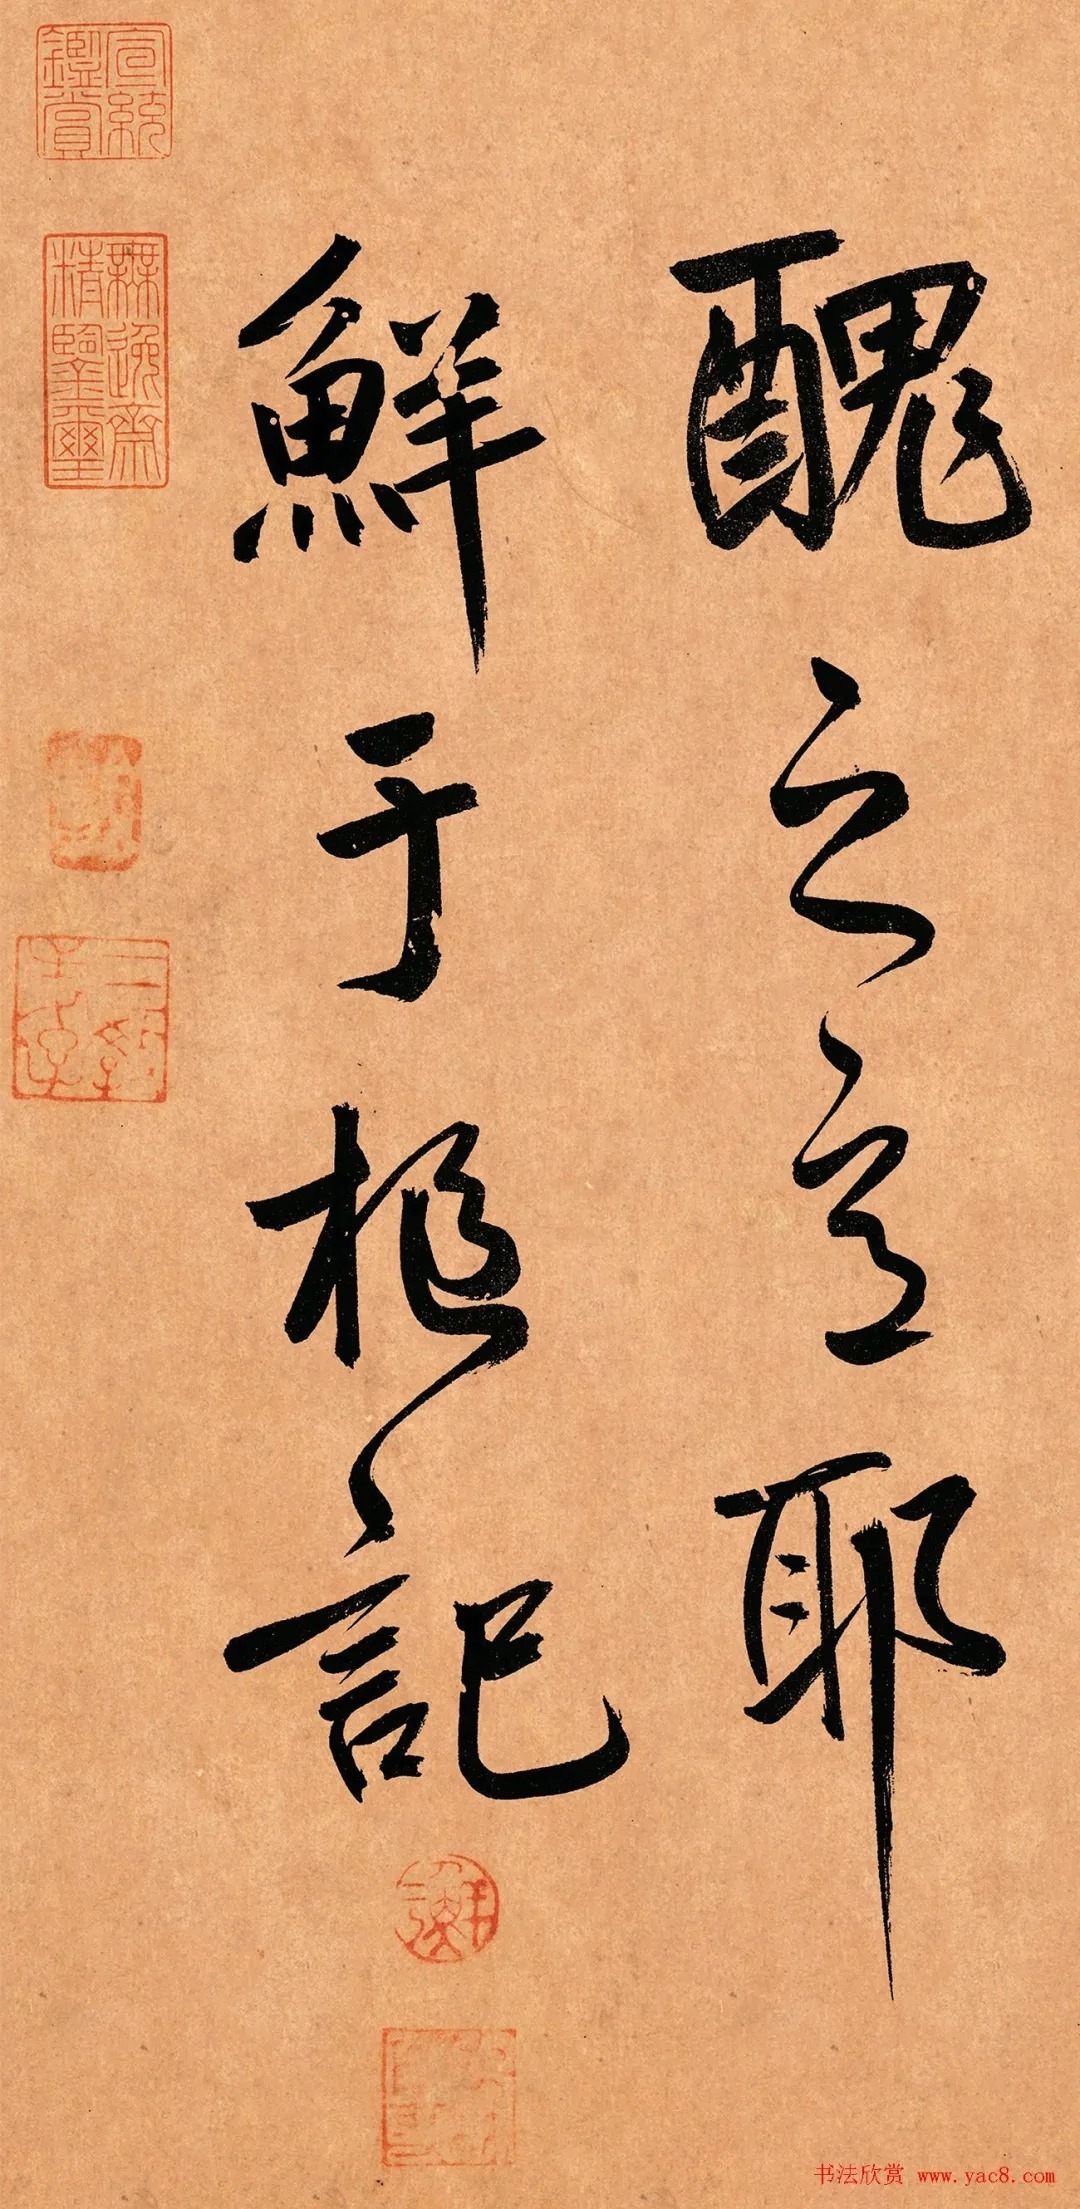 醜之意耶
鮮于樞記
宣統鑑賞
無逸齋精鑒璽
书法欣赏 www.yac8.com